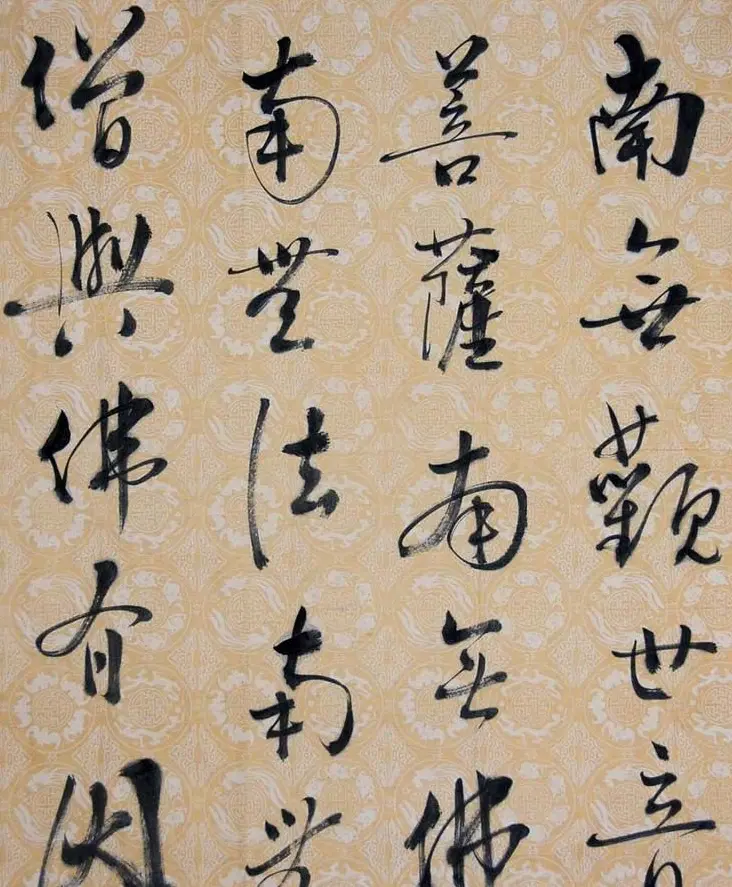 南無觀世音
菩薩南無佛
南無法南無
僧與佛有因